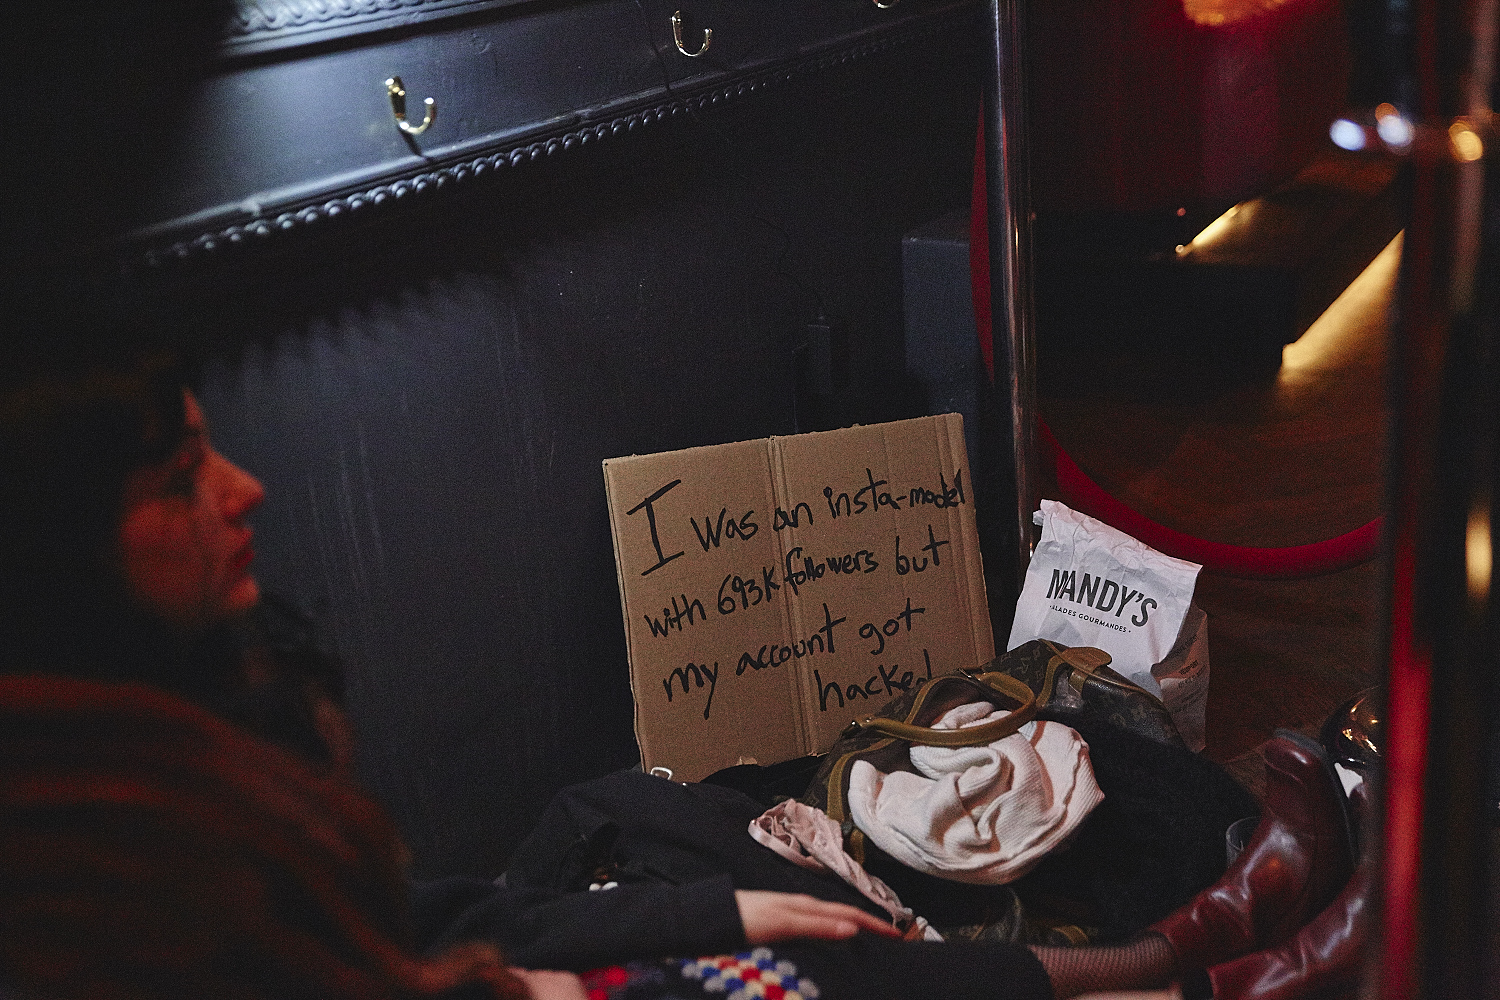 I was an insta-model
with 693K followers but
my account got
hacked
MANDY'S
SALADES GOURMANDES